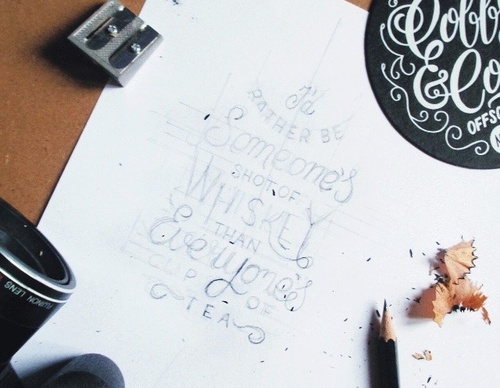 I'd
RATHER BE
Someone's
SHOT OF
WHISKEY
THAN
Everyone's
CUP OF
TEA
&Co
OFFSC